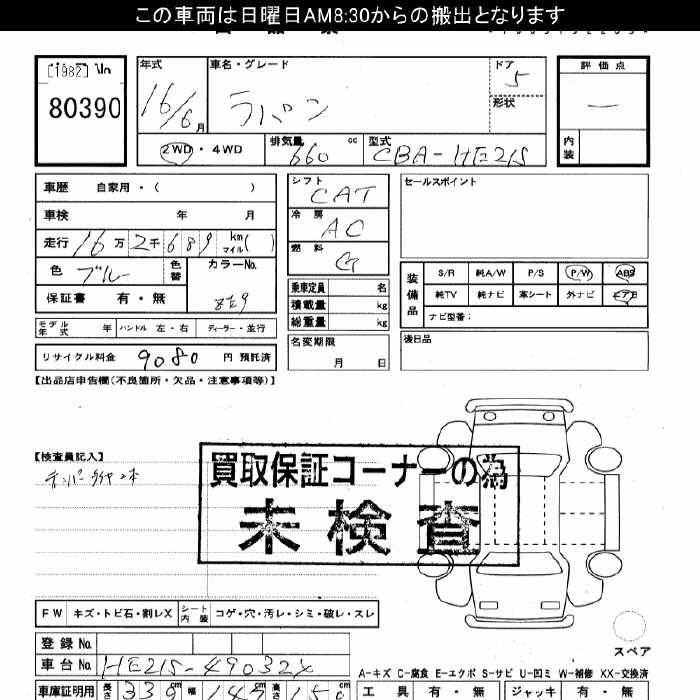 この車両は日曜日AM8:30からの搬出となります
[1982] No
80390
年式
16/6月
車名・グレード
ラパン
ドア
5
形状
評価点
内装
2WD・4WD
排気量
660 cc
型式
CBA-HE21S
車歴 自家用・( )
車検 年 月
走行 16万2千689 km マイル( )
色 ブルー
色替
カラーNo.
ZE9
保証書 有・無
モデル年式 年 ハンドル 左・右 ディーラー・並行
リサイクル料金 9080 円 預託済
シフト
CAT
冷房
AC
燃料
G
乗車定員 名
積載量 kg
総重量 kg
名変期限
月 日
セールスポイント
装備品
S/R 純A/W P/S P/W ABS
純TV 純ナビ 革シート 外ナビ エアB
ナビ型番:
後日品
【出品店申告欄(不良箇所・欠品・注意事項等)】
【検査員記入】
テンパータイヤ2本
買取保証コーナーの為
未検査
FW キズ・トビ石・割レX シート内装 コゲ・穴・汚レ・シミ・破レ・スレ
登録No.
車台No. HE21S-
スペア
A-キズ C-腐食 E-エクボ S-サビ U-凹ミ W-補修 XX-交換済
車庫証明用 長さ 339cm 幅 147cm 高さ
工具 有・無 ジャッキ 有・無